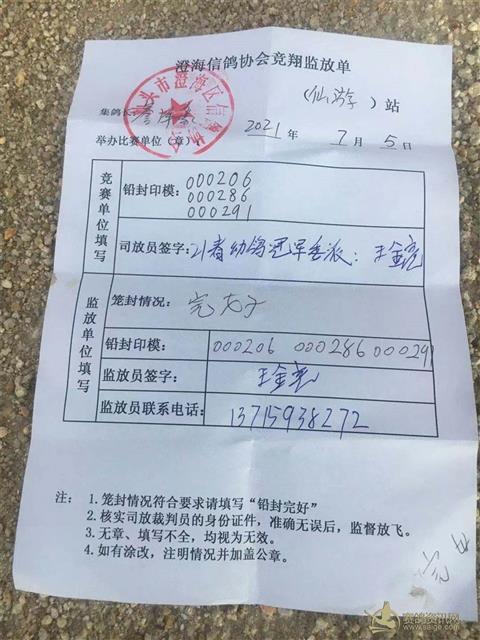 澄海信鸽协会竞翔监放单
(仙游)站
汕头市澄海区信鸽协会
集鸽长:
举办比赛单位(章): 2021年7月5日
竞赛单位填写
铅封印模: 000206
000286
000291
司放员签字: 21春幼鸽冠军委派: 王金亮
监放单位填写
笼封情况: 完好
铅封印模: 000206 000286 000291
监放员签字: 王金亮
监放员联系电话: 13715938272
注: 1.笼封情况符合要求请填写“铅封完好”
2.核实司放裁判员的身份证件,准确无误后,监督放飞。
3.无章、填写不全,均视为无效。
4.如有涂改,注明情况并加盖公章。
赛鸽资讯网
www.saige.com